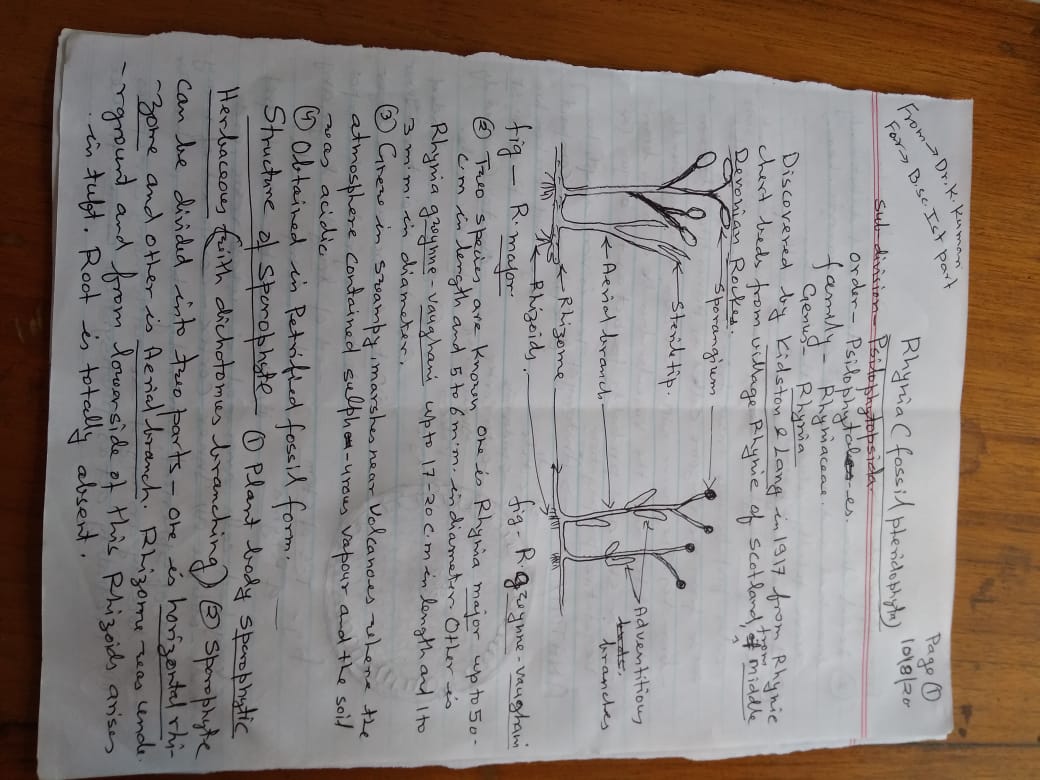 Page ①
From → Dr. K. Kumari
Rhynia (fossil pteridophyta) 10/8/20
For → B.Sc. Ist part
Sub division - Psidophytopsida
order - Psilophytales.
family - Rhyniaceae.
Genus - Rhynia
Discovered by Kidston & Lang in 1917 from Rhynie
chert beds from village Rhynie of Scotland, from middle
Devonian Rocks.
Sporangium
Sterile tip.
Aerial branch
Rhizome
Rhizoids.
Adventitious
branches
fig - R. major
fig - R. gwynne-vaughani
② Two species are known one is Rhynia major up to 50-
c.m in length and 5 to 6 m.m. in diameter. Other is
Rhynia gwynne-vaughani up to 17-20 c.m in length and 1 to
3 m.m. in diameter.
③ Grew in swampy, marshes near volcanoes where the
atmosphere contained sulph-urous vapour and the soil
was acidic
④ Obtained in Petrified fossil form.
Structure of Sporophyte - ① Plant body sporophytic
Herbaceous (with dichotomies branching) ② Sporophyte
can be divided into two parts - one is horizontal rhi-
-zome and other is Aerial branch. Rhizome was unde-
-rground and from lowerside of this Rhizoids arises
in tuft. Root is totally absent.